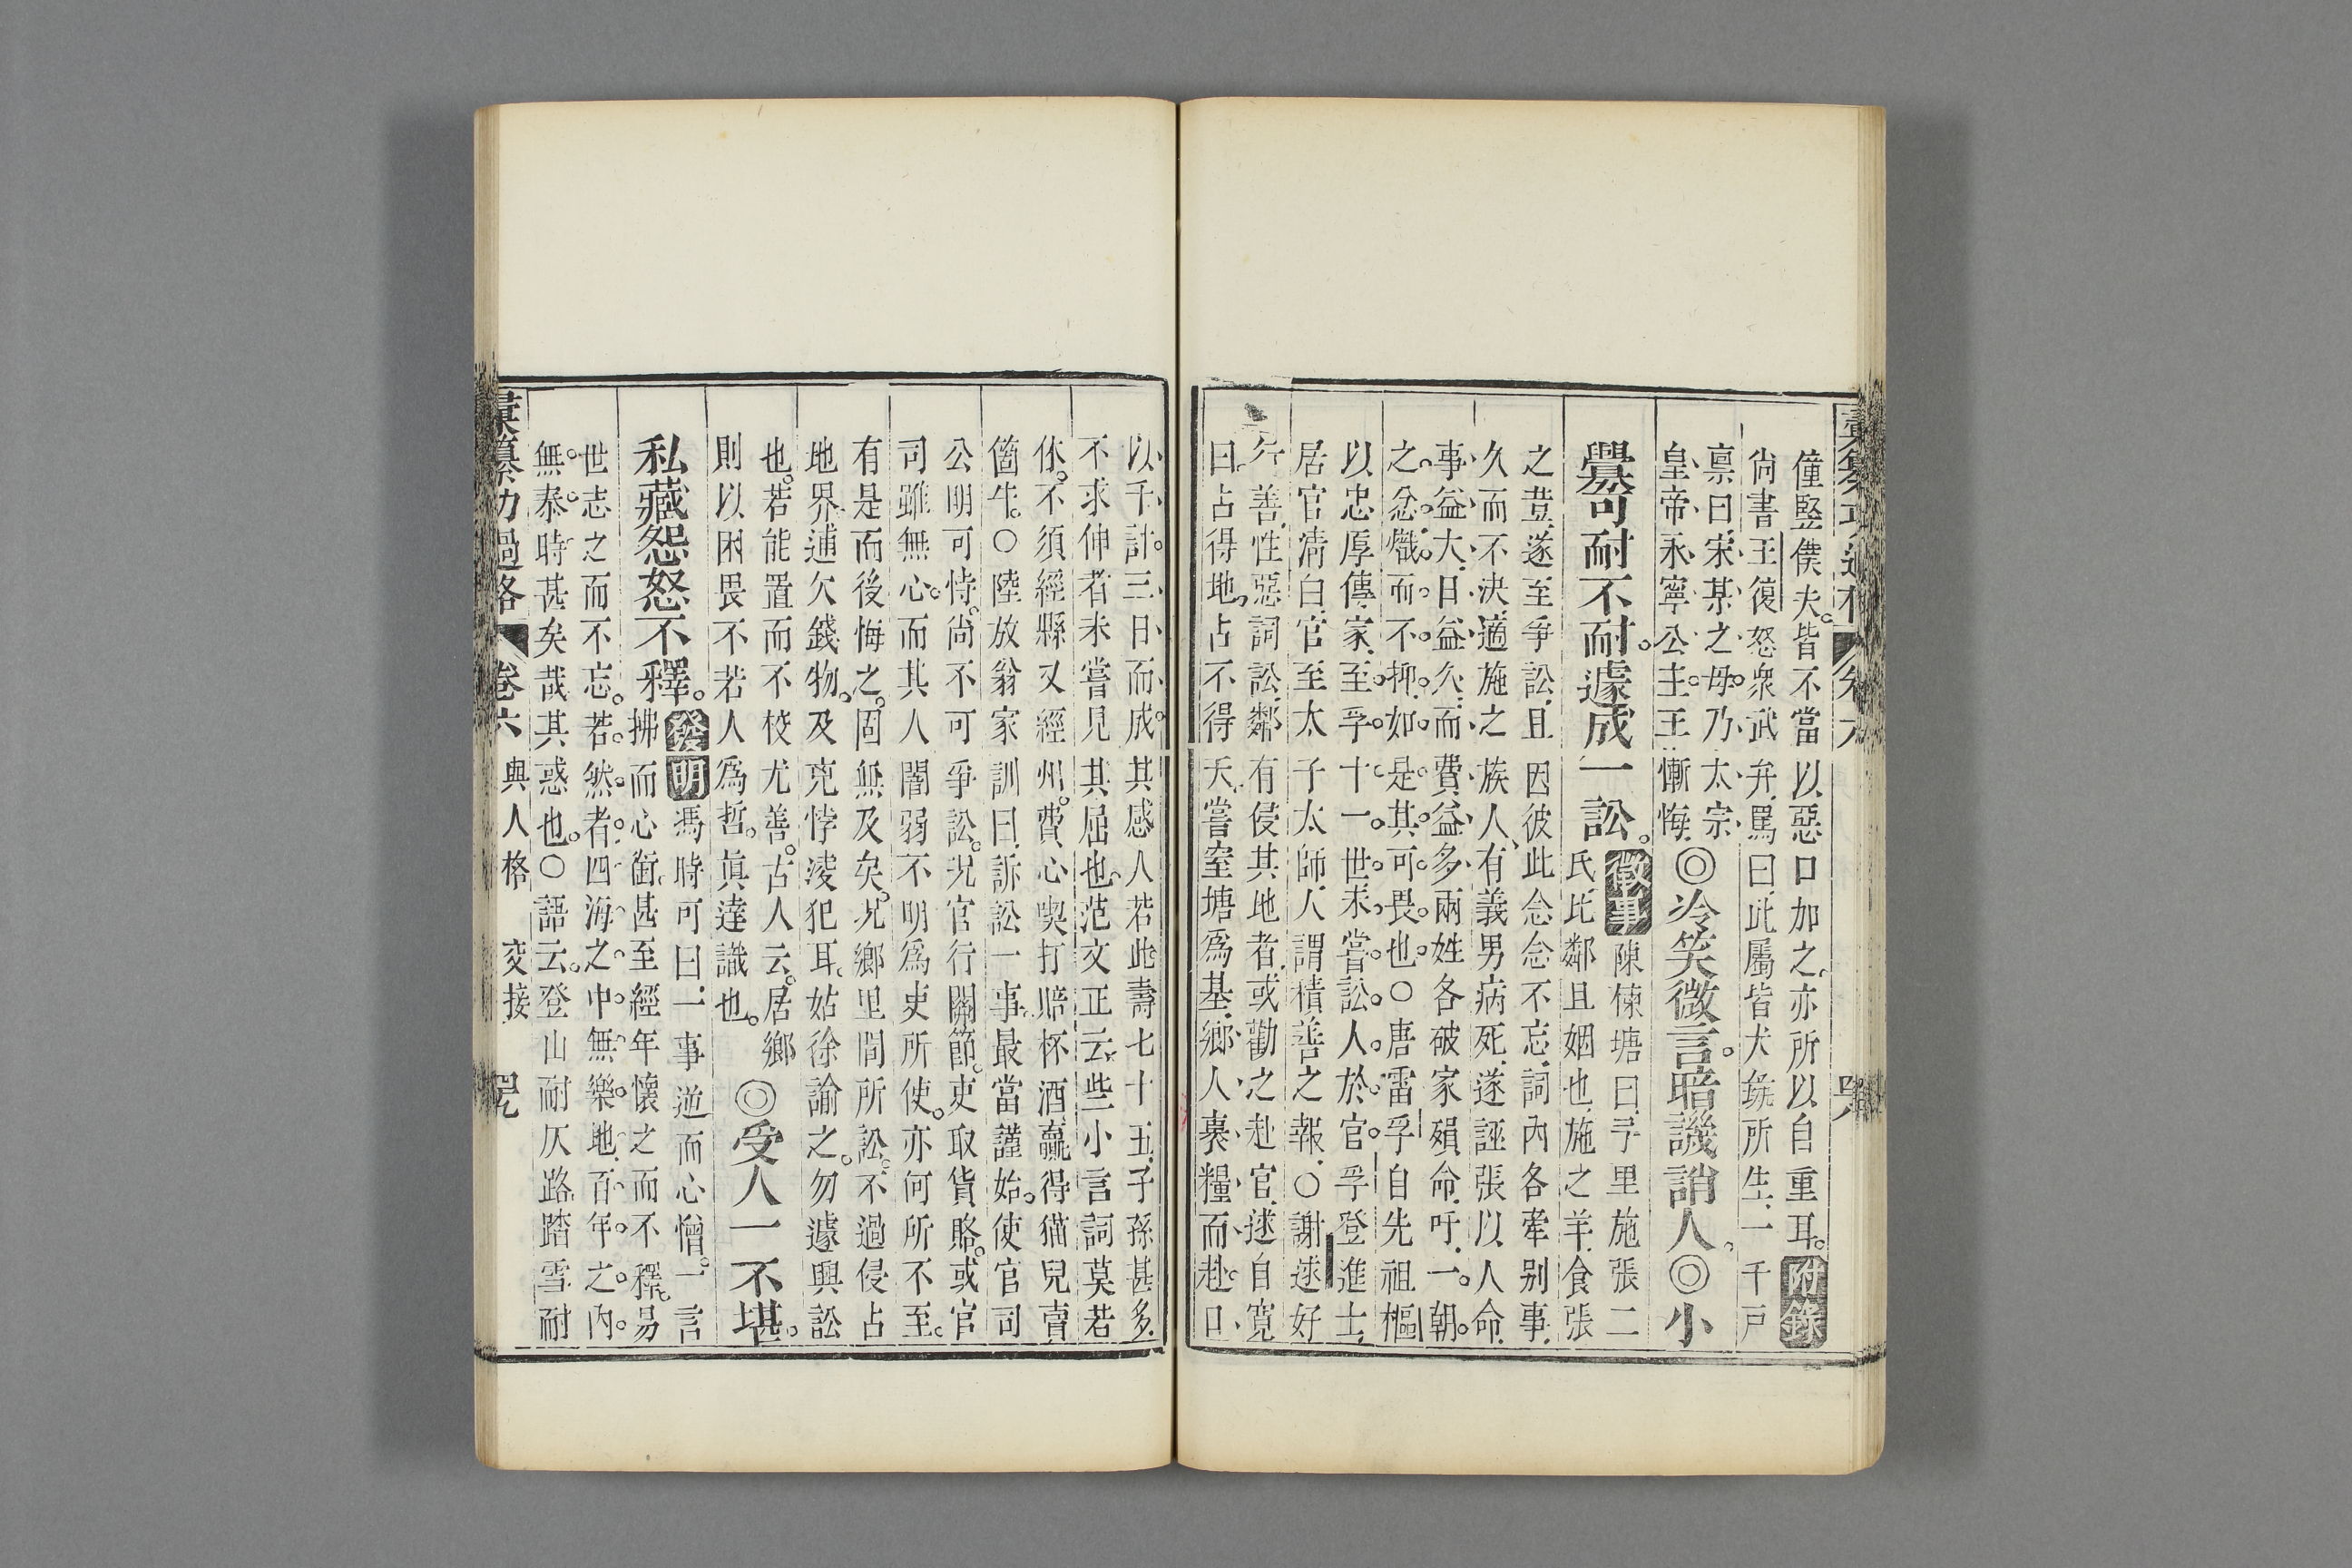 僮豎僕夫。皆不當以惡口加之。亦所以自重耳。附錄
尚書王復怒衆武弁罵曰此屬皆犬㹠所生一千戸
禀曰宋某之母。乃太宗
皇帝永寧公主。王慚悔。◎冷笑微言。暗譏誚人。◎小
釁可耐不耐。遽成一訟。徵事陳楝塘曰予里施張二
氏比鄰且姻也施之羊食張
之荳遂至爭訟且因彼此念念不忘詞內各牽别事
久而不決適施之族人有義男病死遂誣張以人命
事益大日益久而費益多兩姓各破家殞命吁一。朝。
之忿。熾。而。不。抑。如。是。其。可。畏。也。○唐雷孚自先祖樞
以忠厚傳家至。孚。十。一。世。未。嘗。訟。人。於。官。孚登進士
居官清白官至太子太師人謂積善之報○謝逑好
行善性惡詞訟鄰有侵其地者或勸之赴官逑自寬
曰占得地占不得天嘗窒塘爲基鄉人裹糧而赴口
以千計三日而成。其感人若此壽七十五子孫甚多
不求伸者未嘗見其屈也。范文正云些小言詞莫若
休。不須經縣又經州。費心喫打賠杯酒贏得猫兒賣
箇牛。○陸放翁家訓曰訴訟一事最當謹始。使官司
公明可恃。尚不可爭訟。况官行關節。吏取貨賂。或官
司雖無心。而其人闇弱不明爲吏所使。亦何所不至。
有是而後悔之。固無及矣。况鄉里間所訟。不過侵占
地界逋欠錢物。及兇悖淩犯耳。姑徐諭之。勿遽興訟
也。若能置而不校尤善。古人云。居鄉
則以困畏不若人爲哲。眞達識也。◎受人一不堪。
私藏怨怒不釋。發明馮時可曰一事逆而心憎。一言
拂而心銜甚至經年懷之而不釋。易
世志之而不忘。若。然。者。四海之中。無樂。地。百年之內。
無。泰。時甚矣哉其惑也。○語云。登山耐仄路踏雪耐
彙纂功過格 卷六 與人格 交接 四九